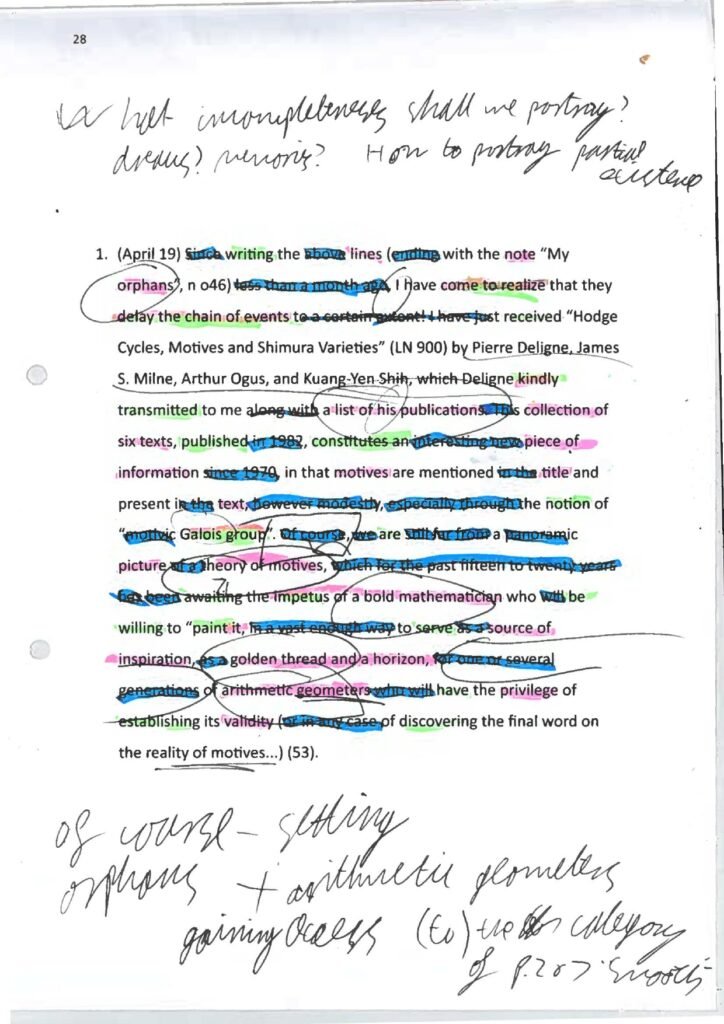 28
What incompletenesses shall we portray?
dreams? memories? How to portray partial
existence
1. (April 19) Since writing the above lines (ending with the note “My
orphans”, n o46) less than a month ago, I have come to realize that they
delay the chain of events to a certain extent! I have just received “Hodge
Cycles, Motives and Shimura Varieties” (LN 900) by Pierre Deligne, James
S. Milne, Arthur Ogus, and Kuang-Yen Shih, which Deligne kindly
transmitted to me along with a list of his publications. This collection of
six texts, published in 1982, constitutes an interesting new piece of
information since 1970, in that motives are mentioned in the title and
present in the text, however modestly, especially through the notion of
“motivic Galois group”. Of course, we are still far from a panoramic
picture of a theory of motives, which for the past fifteen to twenty years
has been awaiting the impetus of a bold mathematician who will be
willing to “paint it, in a vast enough way to serve as a source of
inspiration, as a golden thread and a horizon, for one or several
generations of arithmetic geometers who will have the privilege of
establishing its validity (or in any case of discovering the final word on
the reality of motives...) (53).
of course – setting
orphans + arithmetic geometers
gaining access (to) the category
of p.207